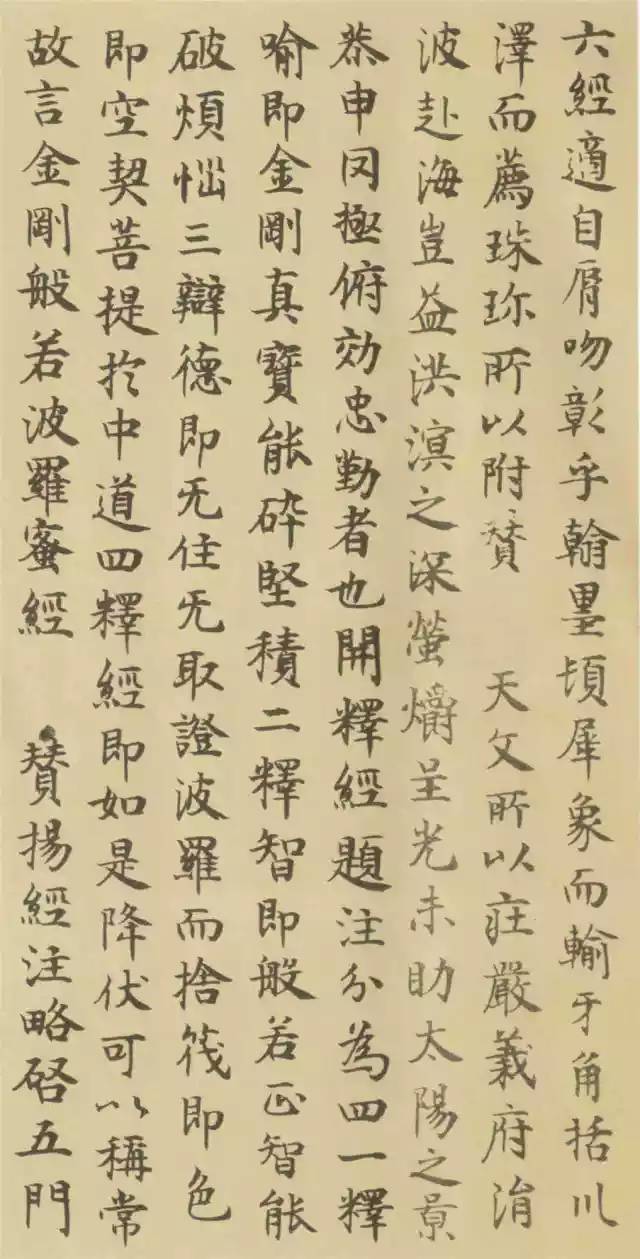 六經適自脣吻彰乎翰墨頃犀象而輸牙角括川
澤而薦珠珎所以附賛 天文所以莊嚴義府涓
波赴海豈益洪溟之深螢爝呈光未助太陽之景
恭申罔極俯効忠勤者也開釋經題注分為四一釋
喻即金剛真寶能碎堅積二釋智即般若正智能
破煩惱三辯德即无住无取證波羅而捨筏即色
即空契菩提於中道四釋經即如是降伏可以稱常
故言金剛般若波羅蜜經 賛揚經注略啓五門